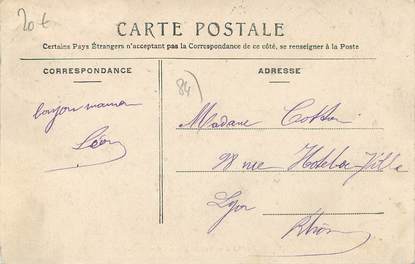 20€
CARTE POSTALE
Certains Pays Étrangers n'acceptant pas la Correspondance de ce côté, se renseigner à la Poste
CORRESPONDANCE
ADRESSE
84)
bonjour maman
Léon
Madame
98 rue Hotel de Ville
Lyon
Rhône